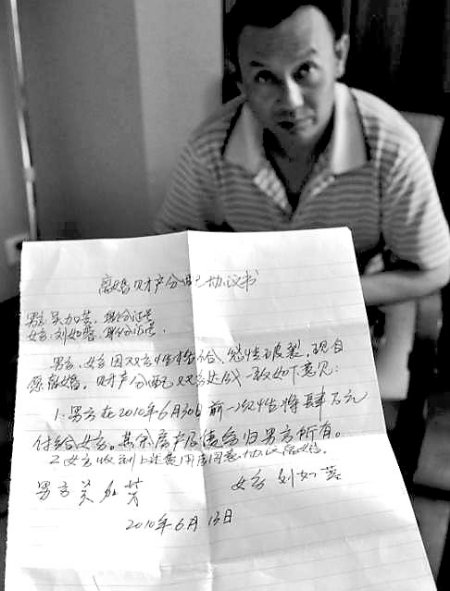 离婚财产分配协议书
男方:吴加芳,身份证号:
女方:刘如蓉,身份证号:
男方、女方因双方性格不合,感情破裂,现自
愿离婚。财产分配双方达成一致如下意见:
1.男方在2010年6月30日前一次性将肆万元
付给女方。其余房产及债务归男方所有。
2.女方收到上述费用后同意协议离婚。
男方 吴加芳 女方 刘如蓉
2010年6月13日